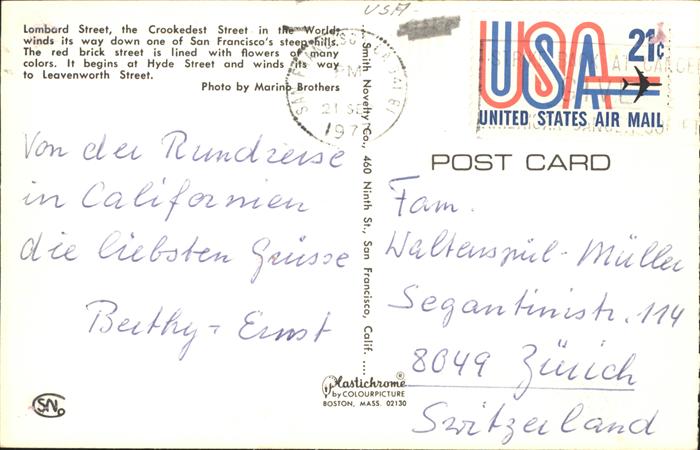 USA
Lombard Street, the Crookedest Street in the World,
winds its way down one of San Francisco's steep hills.
The red brick street is lined with flowers of many
colors. It begins at Hyde Street and winds its way
to Leavenworth Street.
Photo by Marino Brothers
21 SE
197
USA 21c
UNITED STATES AIR MAIL
POST CARD
Von der Rundreise
in Californien
die liebsten Grüsse
Berthy - Ernst
Smith Novelty Co., 460 Ninth St., San Francisco, Calif.
Fam.
Waltenspül-Müller
Segantinistr. 114
8049 Zürich
Switzerland
Plastichrome
by COLOURPICTURE
BOSTON, MASS. 02130
SN